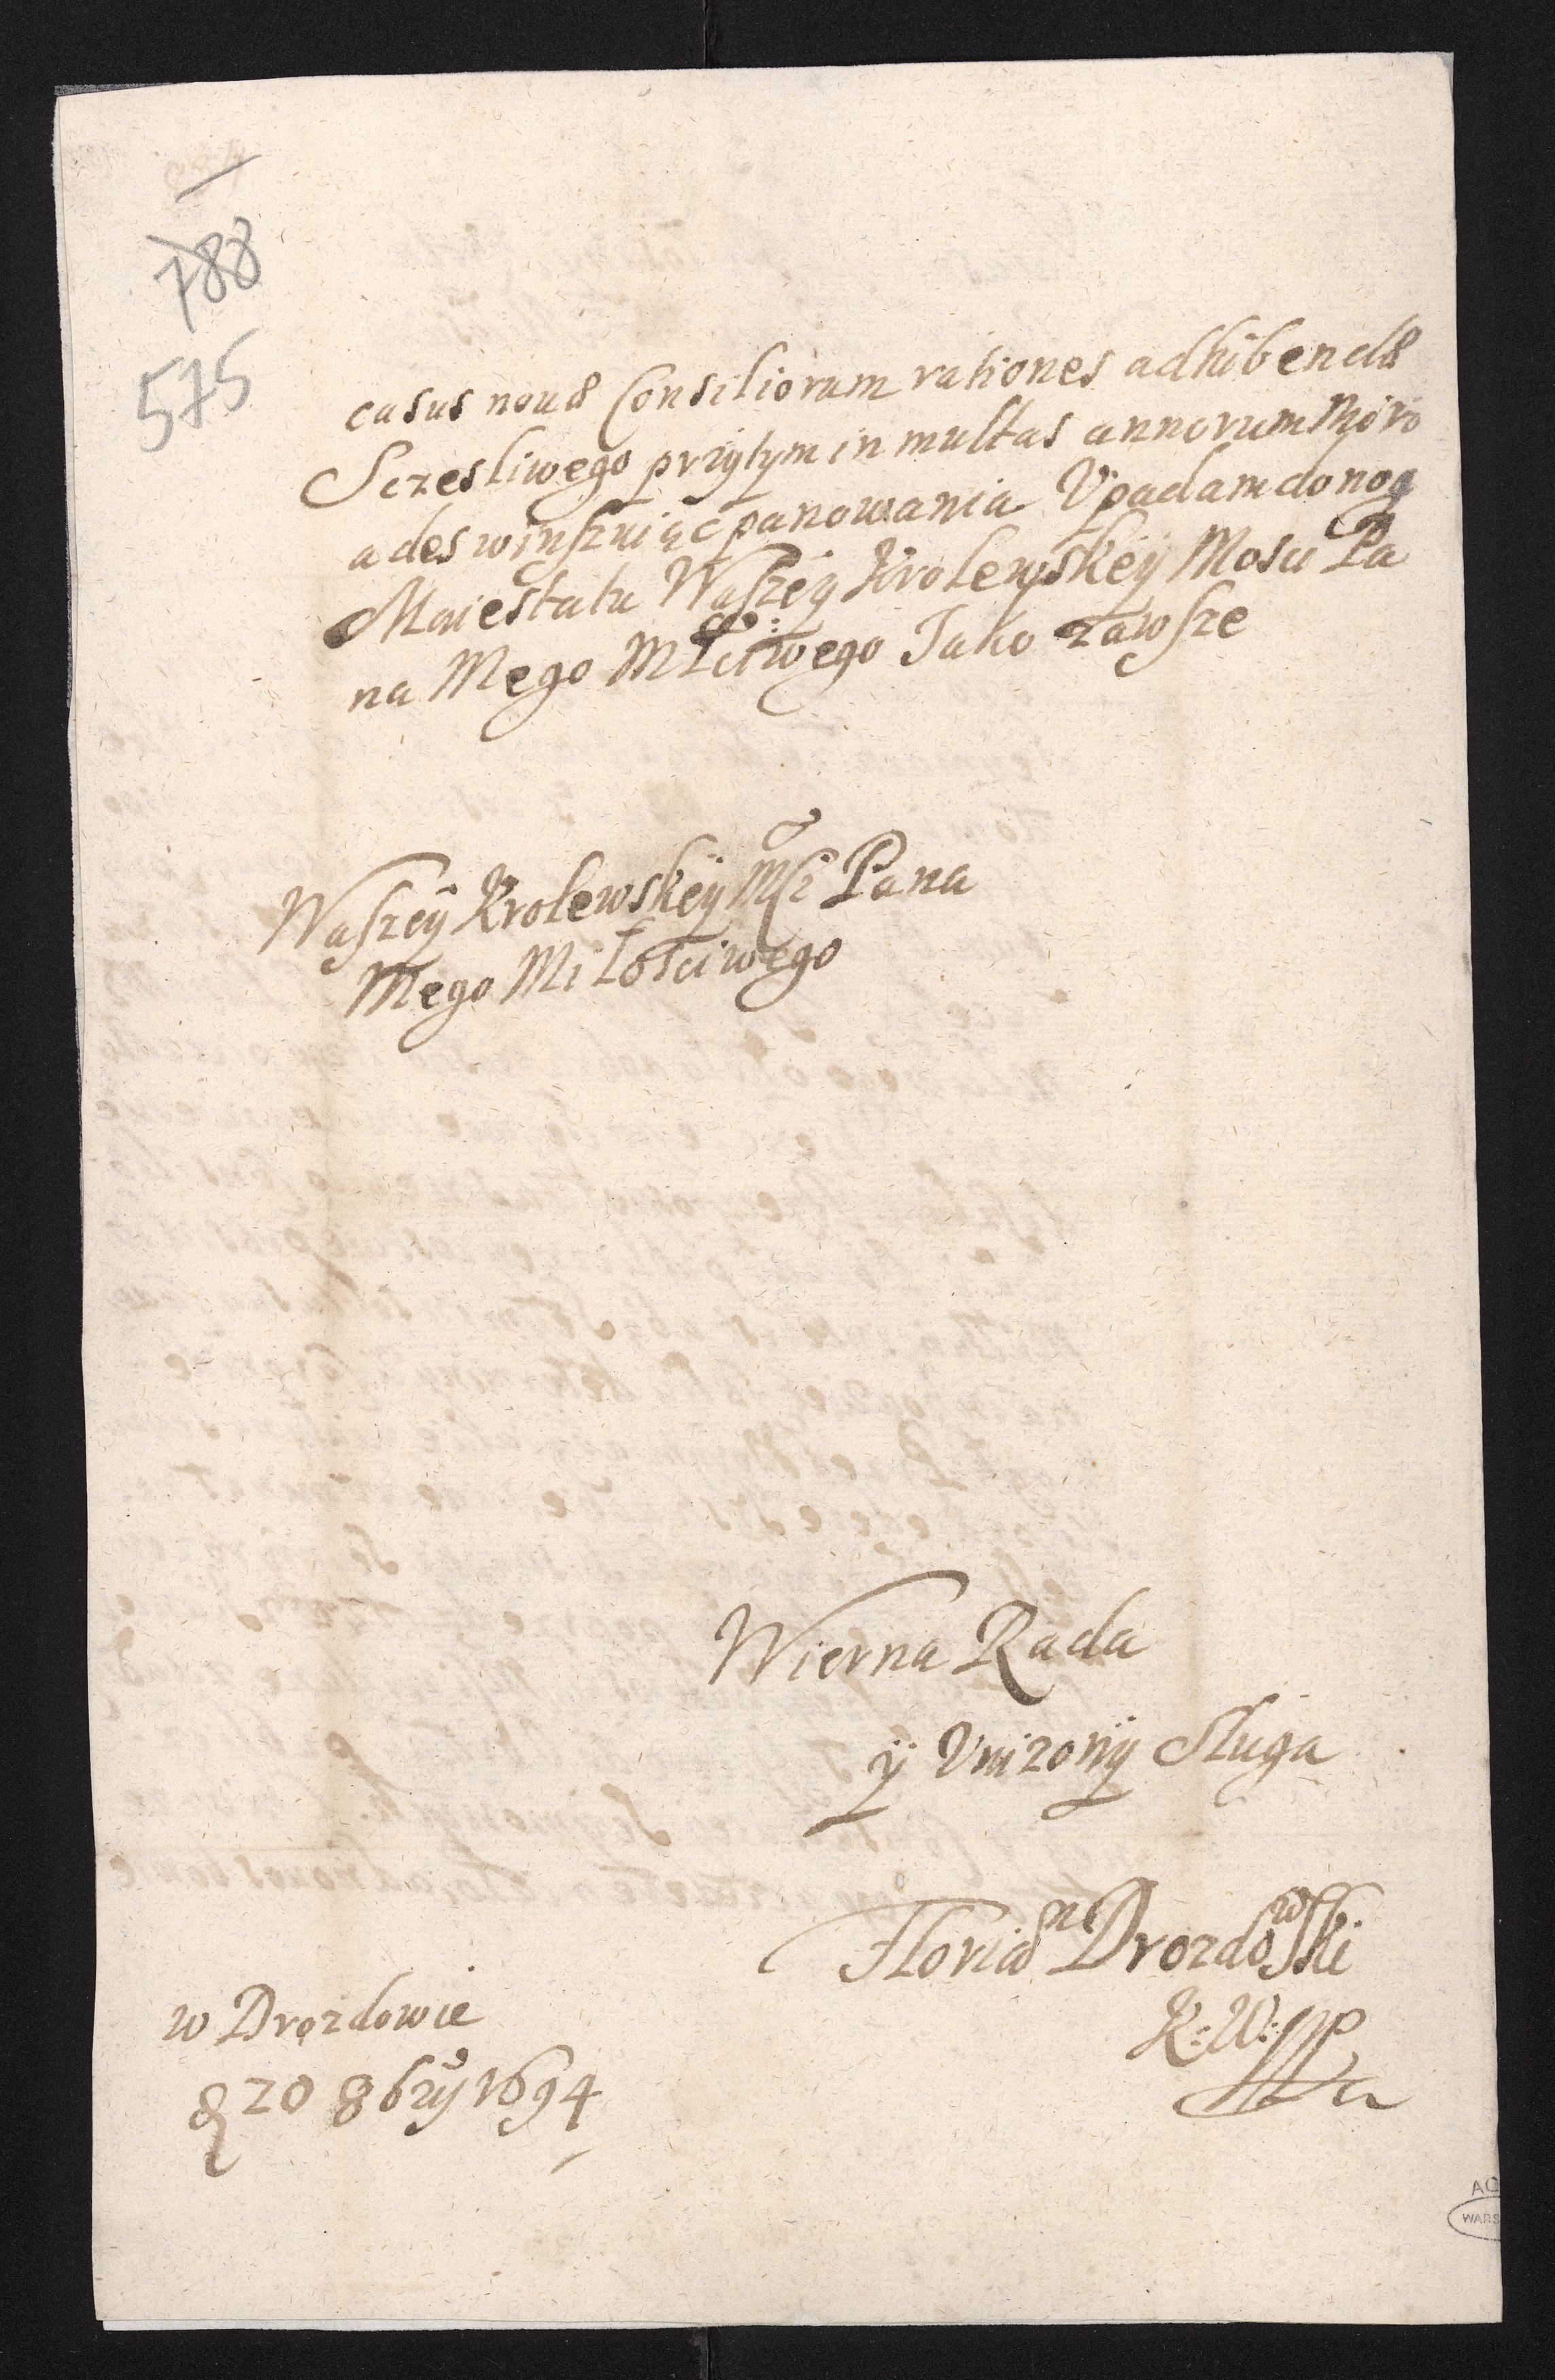 788
575
casus novæ Consiliorum rationes adhibendæ
Sczesliwego przytym in multas annorum Miro
ades winszuiąc panowania Vpadam do nog
Maiestatu Waszey Krolewskiey Mosci Pa
na Mego Młciwego Jako zawsze
Waszey Krolewskiey Mſci Pana
Mego Miłosciwego
Wierna Rada
ÿ Vnizonÿ Sługa
Florian Drozdowski
K: W: mp
w Drozdowie
d 20 8bry 1694
WARS